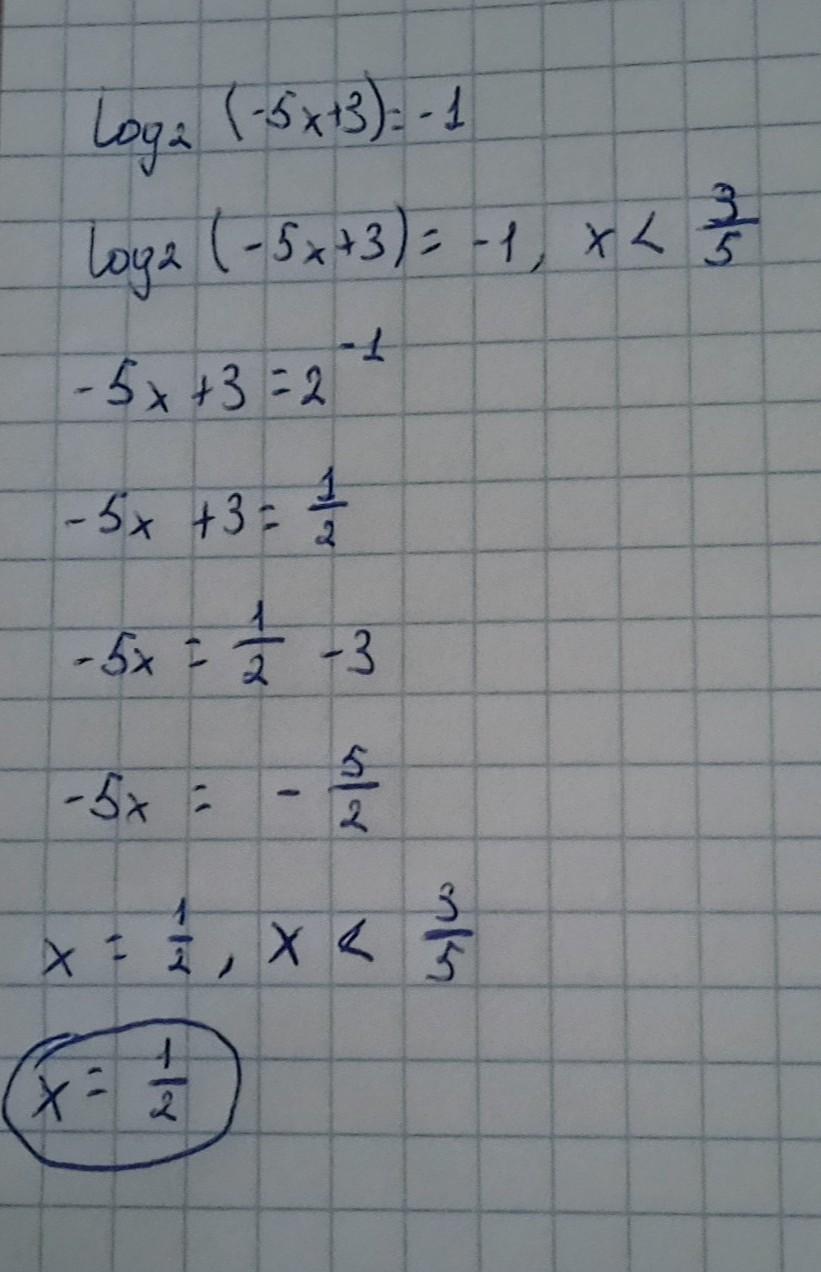 log₂ (-5x+3)=-1
log₂ (-5x+3)= -1, x < 3/5
-5x +3 =2⁻¹
-5x +3= 1/2
-5x = 1/2 -3
-5x = - 5/2
x = 1/2, x < 3/5
x = 1/2